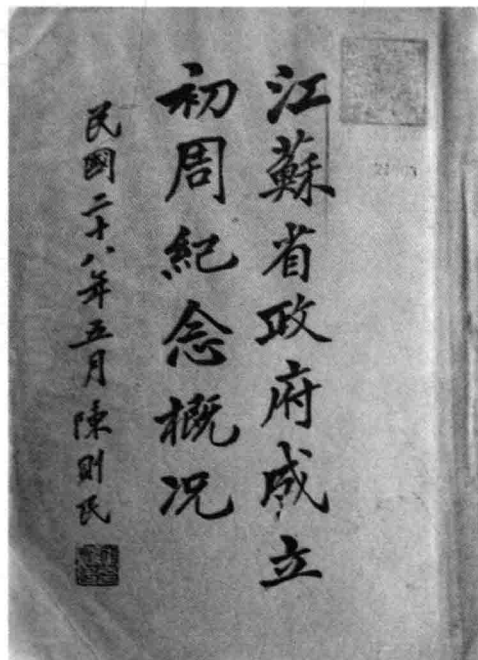 江蘇省政府成立
初周紀念概况
民國二十八年五月 陳則民